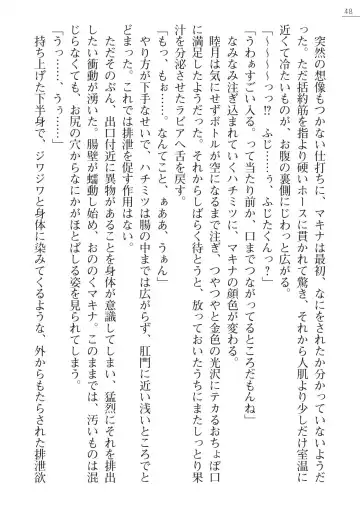 48
突然の想像もつかない仕打ちに、マキナは最初、なにをされたか分かっていないようだ
った。ただ括約筋を指より硬いホースに貫かれて驚き、それから人肌より少しだけ室温に
近くて冷たいものが、お腹の裏側にじわっと広がる。
「～～～～っっ!?　ふじ……ぅ、ふじたくんっ?」
「うわぁすごい入る。って当たり前か、口までつながってるところだもんね」
なみなみ注ぎ込まれていくハチミツに、マキナの顔色が変わる。
睦月は気にせずボトルが空になるまで注ぎ、つやつやと金色の光沢にテカるおちょぼ口
に満足したようだった。それからしばらく待とうと、放っておいたうちにまたしっとり果
汁を分泌させたラビアへ舌を戻す。
「もっ、もぉ……。なんてこと、ぁああ、うぁん」
やり方が下手なせいで、ハチミツは腸の中までは広がらず、肛門に近い浅いところでと
どまった。これでは排泄を促す作用はない。
ただそのぶん、出口付近に異物があることを身体が意識してしまい、猛烈にそれを排出
したい衝動が湧いた。腸壁が蠕動し始め、おののくマキナ。このままでは、汚いものは混
ざらなくとも、お尻の穴からなにかがほとばしる姿を見られてしまう。
「うっ……、うぅ……」
持ち上げた下半身で、ジワジワと身体に染みてくるような、外からもたらされた排泄欲